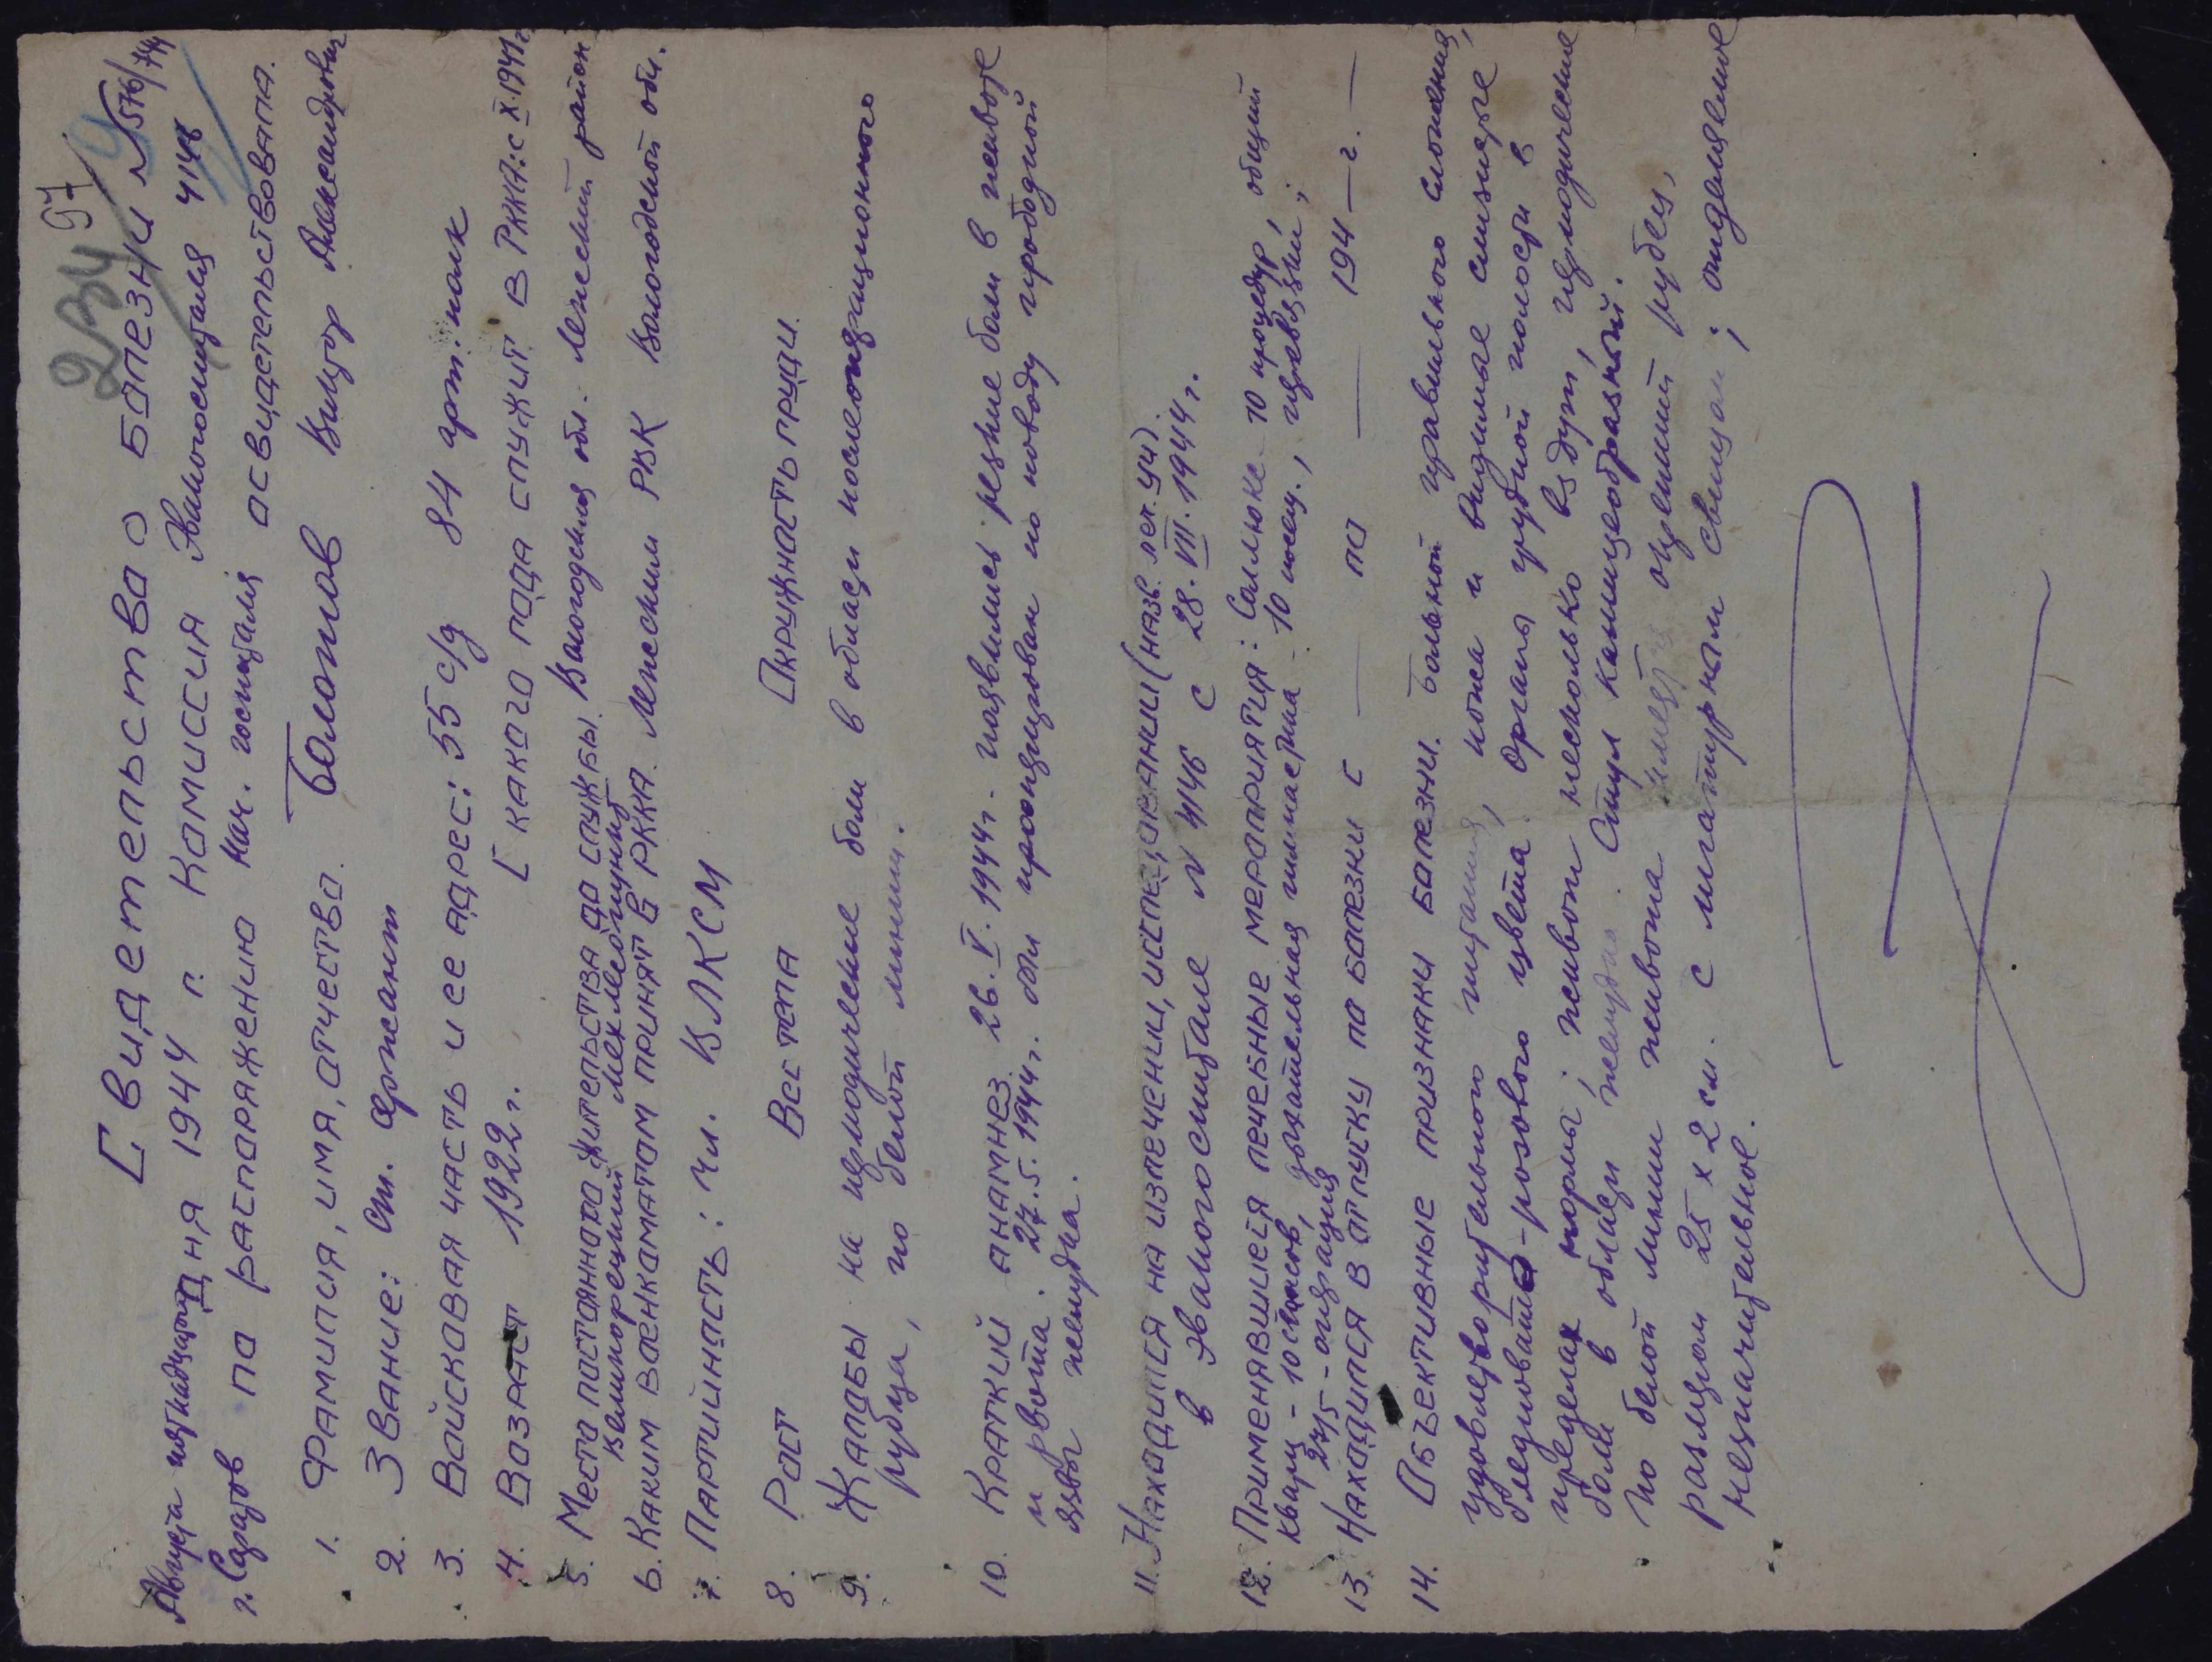 234 97
Свидетельство о болезни № 576/744
Августа пятнадцатого дня 1944 г. Комиссия Эвакогоспиталя 4146
г. Саратов по распоряжению Нач. госпиталя освидетельствовала.
1. Фамилия, имя, отчество. Болотов Виктор Александрович
2. Звание: Ст. Сержант
3. Войсковая часть и ее адрес: 55 с/д 84 арт. полк
4. Возраст 1922 г. С какого года служит в РККА: с X.1941 г.
5. Место постоянного жительства до службы. Вологодская обл. Лежский район
6. Каким военкоматом принят в РККА. Лежским РВК Вологодской обл.
7. Партийность: чл. ВЛКСМ
8. Рост Вес тела Окружность груди.
9. Жалобы на периодические боли в области послеоперационного
рубца, по белой линии.
10. Краткий анамнез 26.V.1944 г. появились резкие боли в животе
и рвота. 27.5.1944 г. был прооперирован по поводу прободной
язвы желудка.
11. Находился на излечении, исследовании (назв. леч. уч).
в эвакогоспитале № 4146 с 28.VII.1944 г.
12. Применявшиеся лечебные мероприятия: Соллюкс 10 процедур, общий
кварц - 10 сеансов, дыхательная гимнастика - 10
27/5 - операция
13. Находился в отпуску по болезни с — по — 194 — г. —
14. Объективные признаки болезни. Больной правильного сложения,
удовлетворительного питания, кожа и видимые слизистые
бледновато-розового цвета. Органы грудной полости в
пределах нормы; живот несколько вздут, периодические
боли в области желудка. Стул кашицеобразный.
По белой линии живота имеется рубец,
размером 25 х 2 см. с
незначительное.